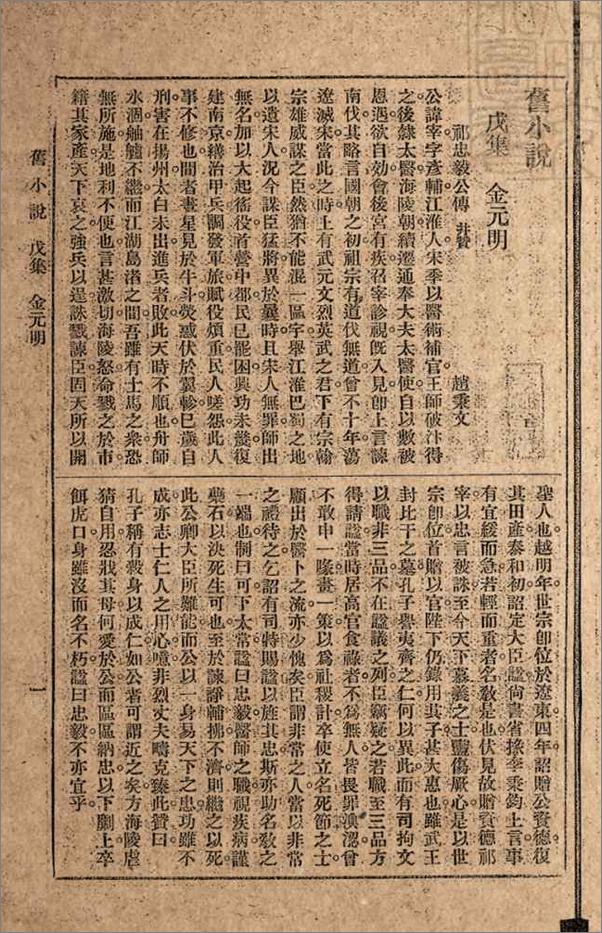 舊小說
戊集　金元明
祁忠毅公傳　并贊　趙秉文
公諱宰字彥輔江淮人宋季以醫術補官王師破汴得
之後隸太醫海陵朝績遷通奉大夫太醫使自以數被
恩遇欲自効會後宮有疾召宰診視旣入見卽上言諫
南伐其略言國朝之初祖宗有道伐無道曾不十年蕩
遼滅宋當此之時上有武元文烈英武之君下有宗翰
宗雄威謀之臣然猶不能混一區宇舉江淮巴蜀之地
以遺宋人況今謀臣猛將異於曩時且宋人無罪師出
無名加以大起徭役首營中都民已罷困興功未幾復
建南京繕治甲兵調發軍旅賦役煩重民人嗟怨此人
事不修也間者晝星見於牛斗熒惑伏於翼軫巳歲自
刑害在揚州太白未出進兵者敗此天時不順也舟師
水涸舳艫不繼而江湖島渚之間吾雖有士馬之衆恐
無所施是地利不便也言甚激切海陵怒命戮之於市
籍其家產天下哀之強兵以逞誅戮諫臣固天所以開
聖人也越明年世宗卽位於遼東四年詔贈公資德復
其田產泰和初詔定大臣諡尚書省掾李秉鈞上言事
有宜緩而急若輕而重者名敎是也伏見故贈資德祁
宰以忠言被誅至今天下慕義之士靈傷厥心是以世
宗卽位首贈以官陛下仍錄用其子甚大惠也雖武王
封比干之墓孔子譽夷齊之仁何以異此而有司拘文
以職非三品不在諡議之列臣竊疑之若職至三品方
得請諡當時居高官食祿者不爲無人皆畏罪淟涊曾
不敢申一喙畫一策以爲社稷計卒使立名死節之士
顧出於醫卜之流亦少愧矣臣謂非常之人當以非常
之禮待之乞詔有司特賜諡以旌其忠斯亦助名敎之
一端也制曰可下太常諡曰忠毅醫師之職視疾病謹
藥石以決死生可也至於諫諍輔拂不濟則繼之以死
此公卿大臣所難能而公以一身易天下之忠功雖不
成亦志士仁人之用心噫非烈丈夫疇克臻此贊曰
孔子稱有殺身以成仁如公者可謂近之矣方海陵虐
猜自用忍戕其母何愛於公而區區納忠以下劘上卒
餌虎口身雖沒而名不朽諡曰忠毅不亦宜乎
舊小說　戊集　金元明　一